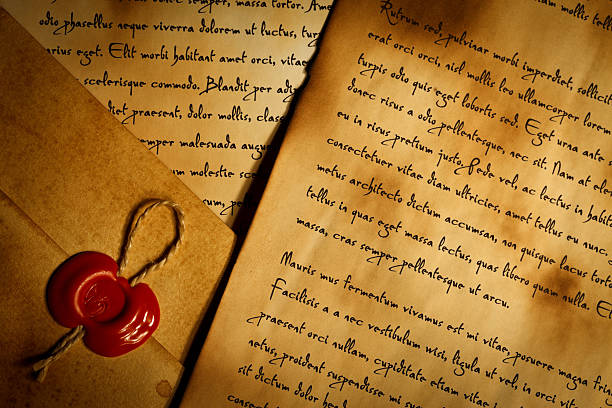 semper, massa tortor. Amet
odio phasellus neque viverra dolorem ut luctus, turpis
eget. Elit morbi habitant amet orci, vitae
scelerisque commodo. Blandit per
diet praesent, dolor mollis, class
semper malesuada augue
um molestie
Rutrum sed, pulvinar morbi imperdiet,
erat orci orci, nisl mollis leo ullamcorper lorem
turpis odio quis eget lobortis sed. Eget urna ante
donec risus a odio pellentesque, nec sit. Nam at
eu in risus pretium justo. Pede vel, ac lectus in
consectetuer vitae diam ultricies, amet tellus eu nunc,
metus architecto dictum accumsan, non quisque lacus
tellus in quas eget massa lectus, quas libero quam nulla.
massa, cras semper pellentesque ut arcu.
Mauris mus fermentum vivamus est mi vitae, posuere magna
Facilisis a a nec vestibulum wisi, ligula ut vel, in orci
praesent orci nullam, cupiditate etiam
netus, proident suspendisse mi
sit dictum dolor
consectetuer